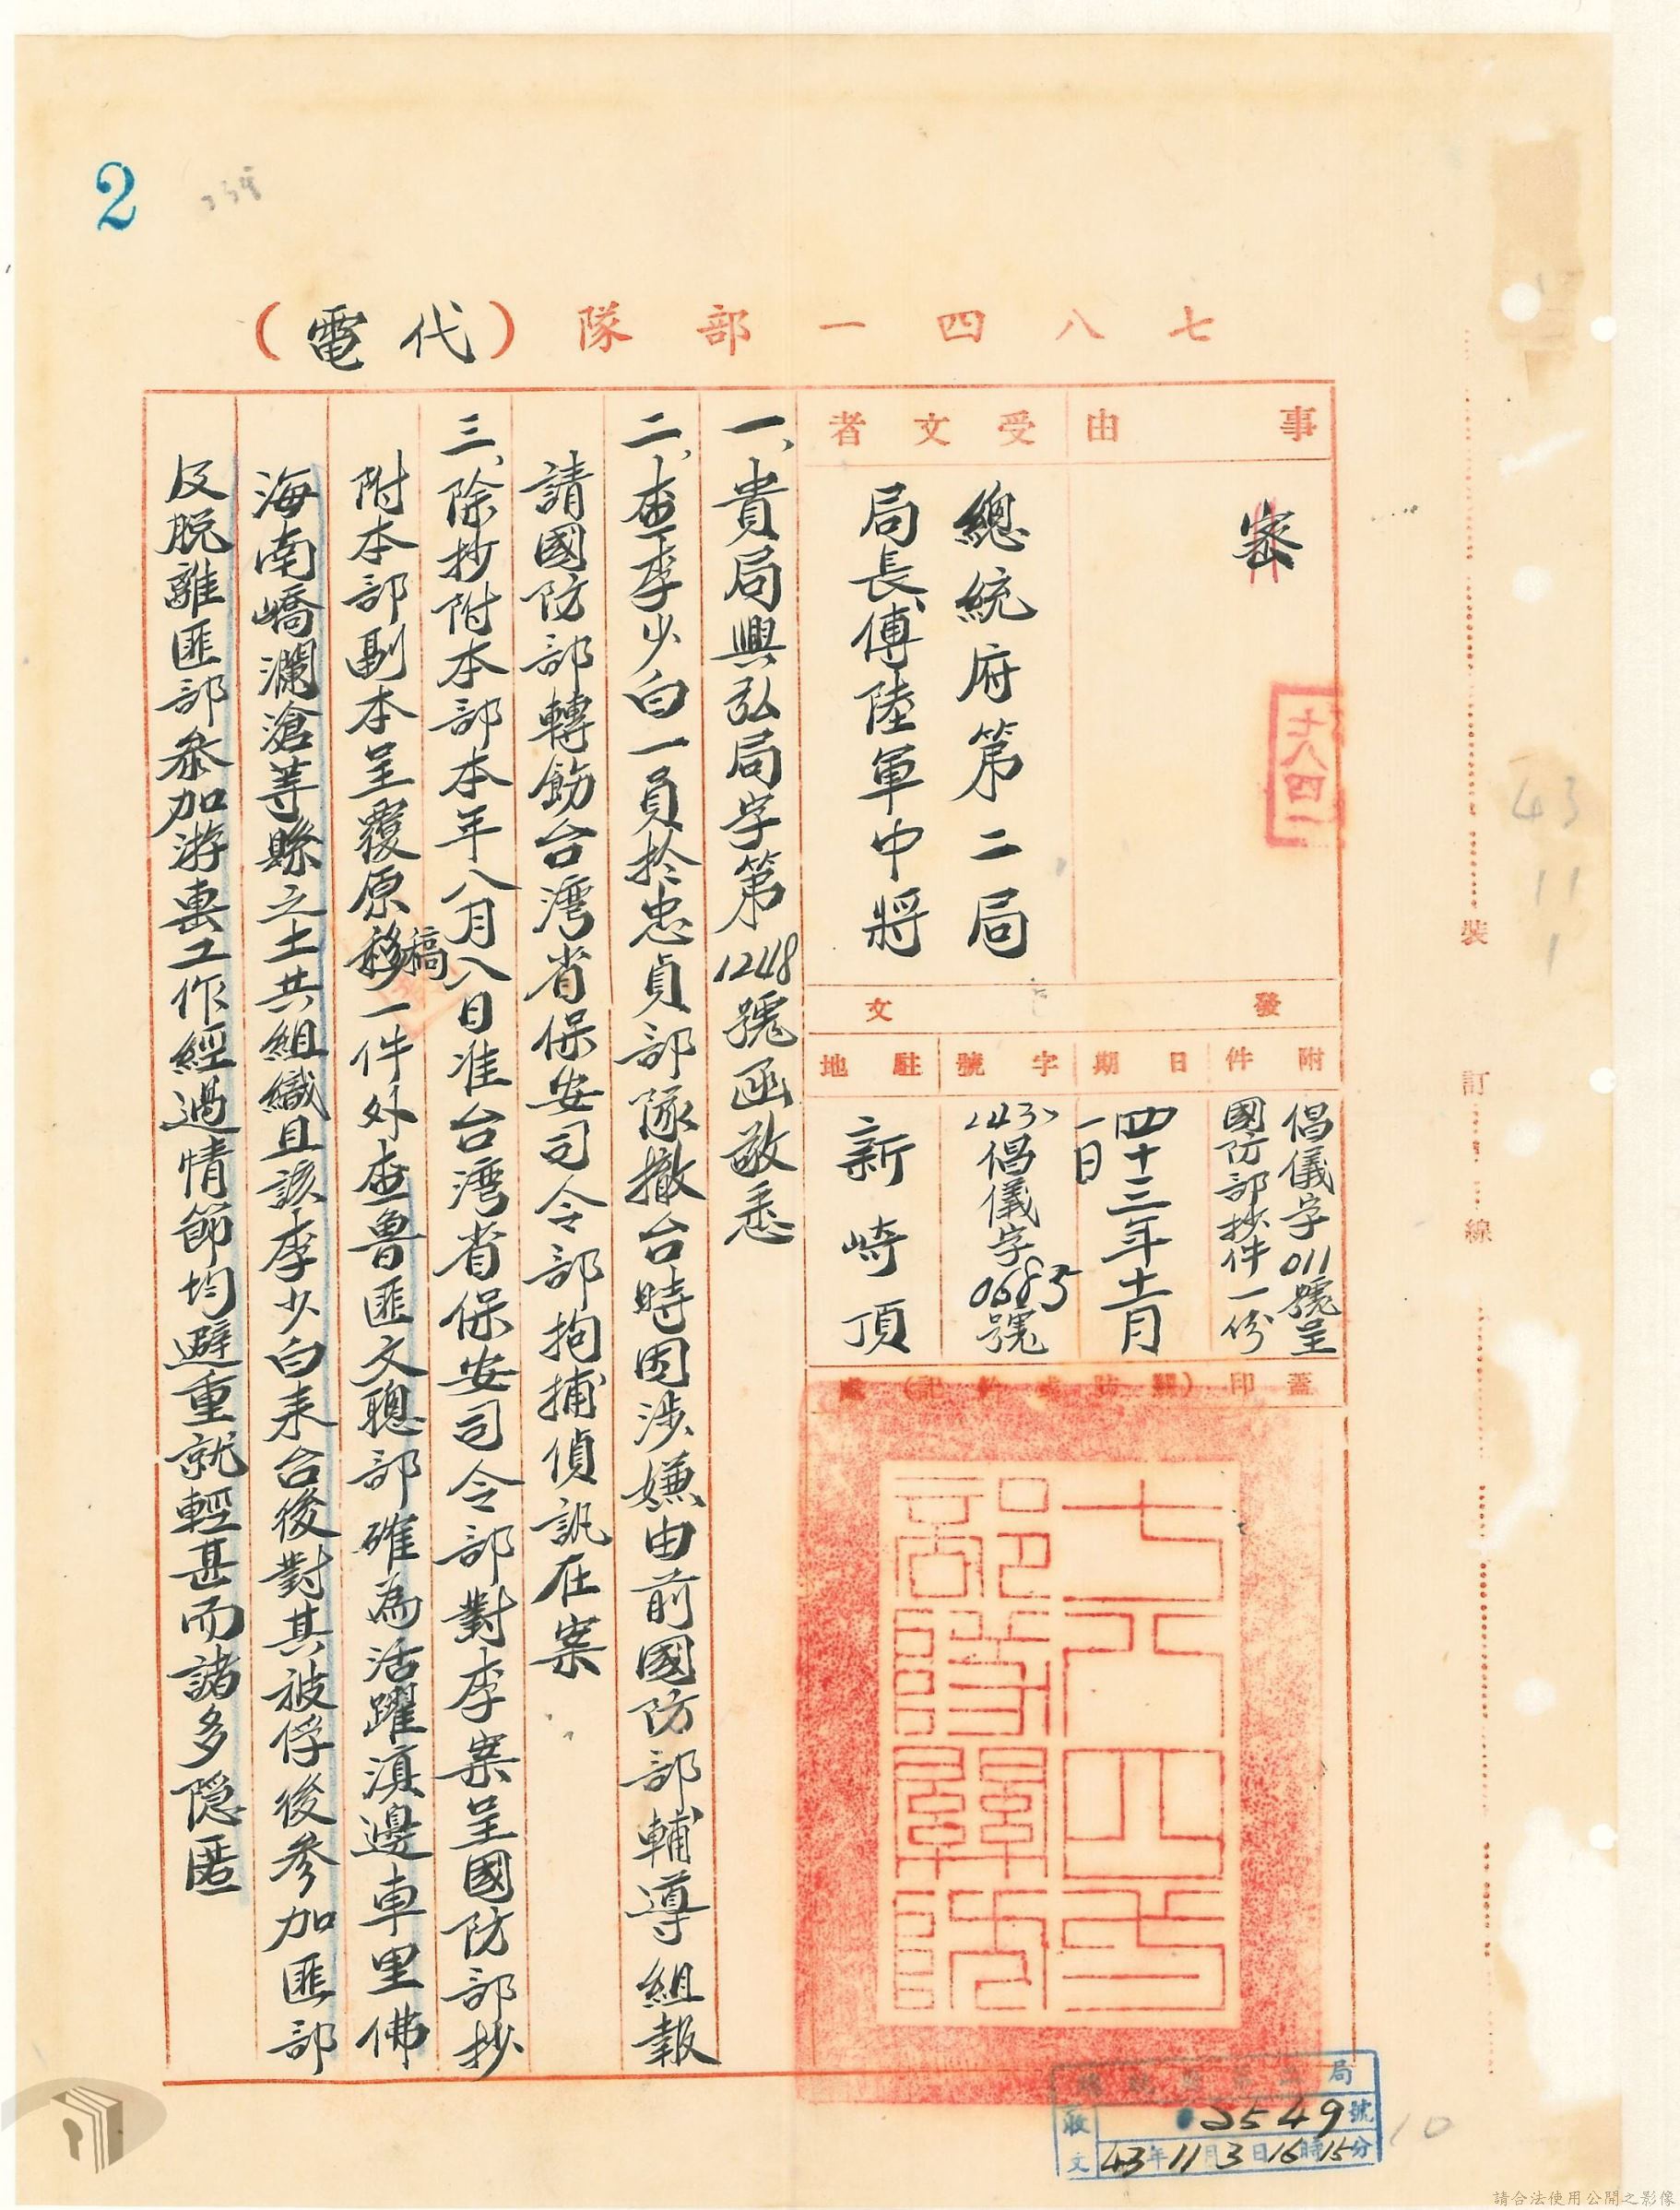 2
七八四一部隊(代電)
事由
密
受文者
總統府第二局
局長傅陸軍中將
七八四一
發文
附件
倡儀字011號呈
國防部抄件一份
日期
四十三年十一月
一日
字號
(43)倡儀字0685號
駐地
新崎頂
蓋印(關防或鈐記)處
一、貴局興弘局字第1248號函敬悉
二、查李少白一員於忠貞部隊撤台時因涉嫌由前國防部輔導組報
請國防部轉飭台灣省保安司令部拘捕偵訊在案
三、除抄附本部本年八月八日准台灣省保安司令部對李案呈國防部抄
附本部副本呈覆原稿一件外查魯匪文聰部確為活躍滇邊車里佛
海南嶠瀾滄等縣之土共組織且該李少白來台後對其被俘後參加匪部
及脫離匪部參加游擊工作經過情節均避重就輕甚而諸多隱匿
裝
訂
線
43
11
1
總統府第二局
收文
2549號
43年11月3日16時15分
10
請合法使用公開之影像